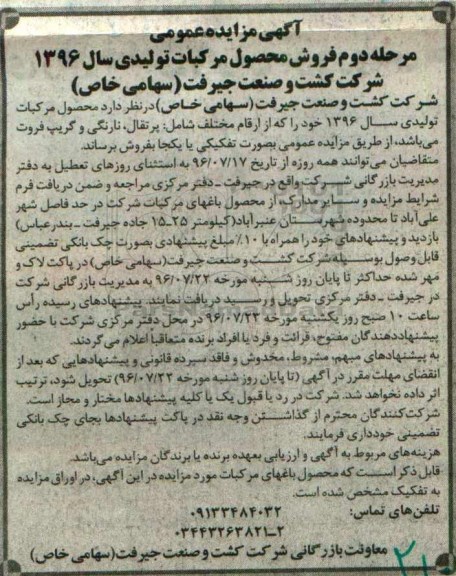 آگهی مزایده عمومی
مرحله دوم فروش محصول مرکبات تولیدی سال ۱۳۹۶
شرکت کشت و صنعت جیرفت (سهامی خاص)
شرکت کشت و صنعت جیرفت (سهامی خاص) در نظر دارد محصول مرکبات
تولیدی سال ۱۳۹۶ خود را که از ارقام مختلف شامل: پرتقال، نارنگی و گریپ فروت
می‌باشد، از طریق مزایده عمومی بصورت تفکیکی یا یکجا بفروش برساند.
متقاضیان می‌توانند همه روزه از تاریخ ۹۶/۰۷/۱۷ به استثنای روزهای تعطیل به دفتر
مدیریت بازرگانی شرکت واقع در جیرفت - دفتر مرکزی مراجعه و ضمن دریافت فرم
شرایط مزایده و سایر مدارک، از محصول باغهای مرکبات شرکت در حد فاصل شهر
علی‌آباد تا محدوده شهرستان عنبرآباد (کیلومتر ۲۵-۱۵ جاده جیرفت - بندرعباس)
بازدید و پیشنهادهای خود را همراه با ۱۰٪ مبلغ پیشنهادی بصورت چک بانکی تضمینی
قابل وصول بوسیله شرکت کشت و صنعت جیرفت (سهامی خاص) در پاکت لاک و
مهر شده حداکثر تا پایان روز شنبه مورخه ۹۶/۰۷/۲۲ به مدیریت بازرگانی شرکت
در جیرفت - دفتر مرکزی تحویل و رسید دریافت نمایند. پیشنهادهای رسیده رأس
ساعت ۱۰ صبح روز یکشنبه مورخه ۹۶/۰۷/۲۳ در محل دفتر مرکزی شرکت با حضور
پیشنهاددهندگان مفتوح، قرائت و فرد یا افراد برنده متعاقبا اعلام می‌گردند.
به پیشنهادهای مبهم، مشروط، مخدوش و فاقد سپرده قانونی و پیشنهادهایی که بعد از
انقضای مهلت مقرر در آگهی (تا پایان روز شنبه مورخه ۹۶/۰۷/۲۲) تحویل شود، ترتیب
اثر داده نخواهد شد. شرکت در رد یا قبول یک یا کلیه پیشنهادها مختار و مجاز است.
شرکت‌کنندگان محترم از گذاشتن وجه نقد در پاکت پیشنهادها بجای چک بانکی
تضمینی خودداری فرمایند.
هزینه‌های مربوط به آگهی و ارزیابی بعهده برنده یا برندگان مزایده می‌باشد.
قابل ذکر است که محصول باغهای مرکبات مورد مزایده در این آگهی، در اوراق مزایده
به تفکیک مشخص شده است.
تلفن‌های تماس: ۰۹۱۳۳۴۸۴۰۳۲
۰۳۴۴۳۲۶۳۸۲۱-۲
معاونت بازرگانی شرکت کشت و صنعت جیرفت (سهامی خاص)